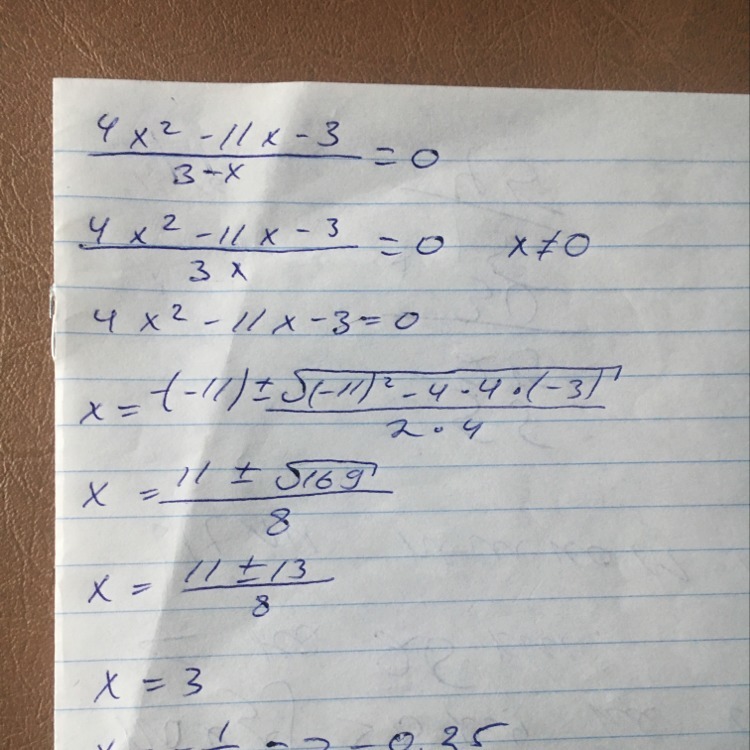 4x² - 11x - 3 / 3 - x = 0
4x² - 11x - 3 / 3x = 0 x ≠ 0
4x² - 11x - 3 = 0
x = -(-11) ± √(-11)² - 4 · 4 · (-3) / 2 · 4
x = 11 ± √169 / 8
x = 11 ± 13 / 8
x = 3